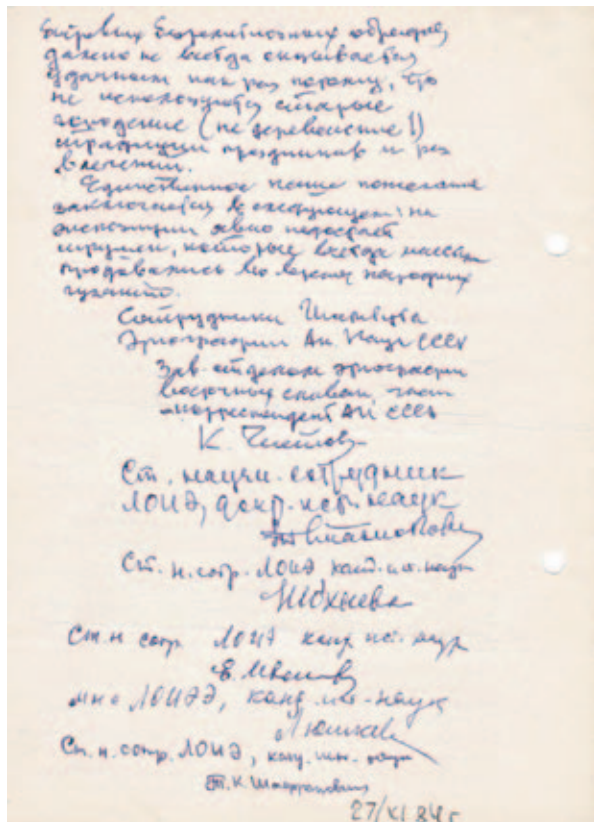 даже не всегда оказывается
удачными как раз потому, что
не используются старые
городские (не деревенские!)
традиции праздников и раз
влечений.
Единственное наше пожелание
заключается в следующем: на
экспозиции явно недостает
игрушки, которые всегда
продавались во время народных
гуляний.
Сотрудники Института
Этнографии Ан. Наук СССР
Зав. отделом этнографии
восточных славян, член-
-корреспондент АН СССР
К. Чистов
Ст. научн. сотрудник
ЛОИЭ, докр. ист. наук
Ст. н. сотр. ЛОИЭ канд. ист. наук
Ст. н сотр. ЛОИЭ канд ист. наук
мнс ЛОИЭ, канд. ист. наук
Ст. н. сотр. ЛОИЭ, канд. ист. наук
27/XI 84 г